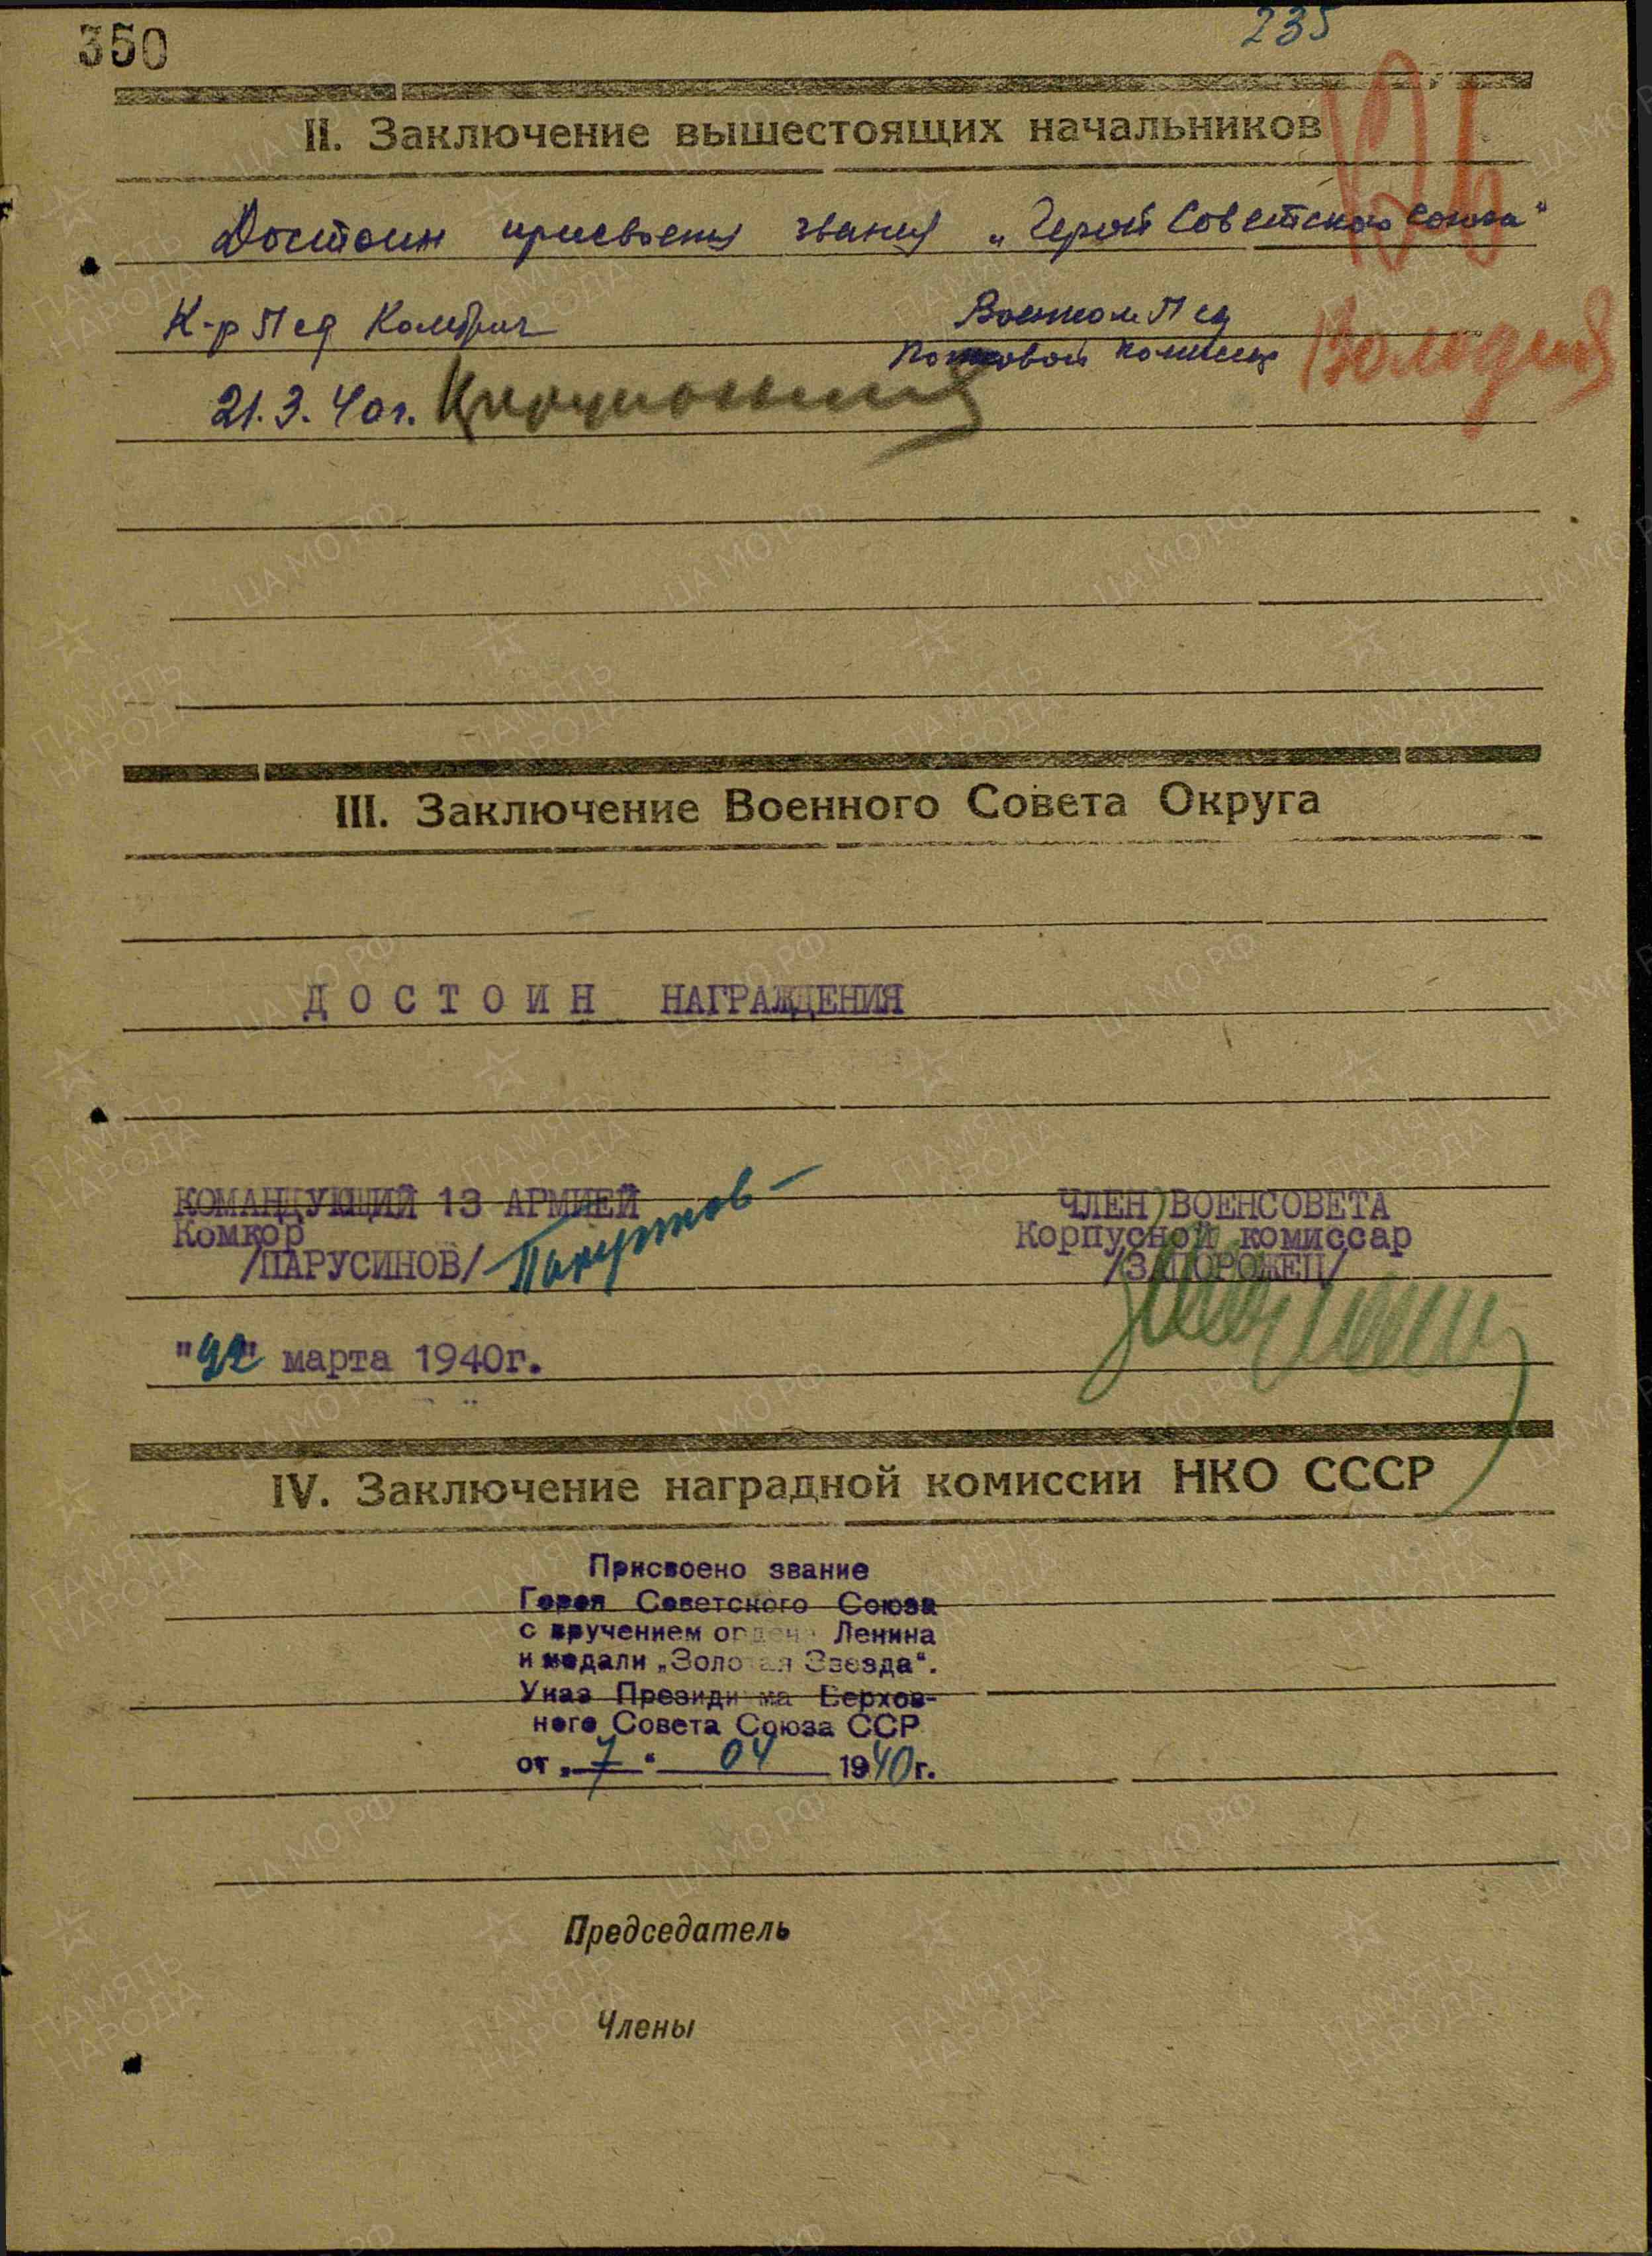 350
235
II. Заключение вышестоящих начальников
Достоин присвоения звания „Герой Советского Союза“
К-р 17 сд Комбриг
Военком 17 сд
Полковой комиссар
21.3.40г.
III. Заключение Военного Совета Округа
ДОСТОИН НАГРАЖДЕНИЯ
КОМАНДУЮЩИЙ 13 АРМИЕЙ
Комкор
/ПАРУСИНОВ/
ЧЛЕН ВОЕНСОВЕТА
Корпусной комиссар
/ЗАПОРОЖЕЦ/
"22" марта 1940г.
IV. Заключение наградной комиссии НКО СССР
Присвоено звание
Героя Советского Союза
с вручением ордена Ленина
и медали „Золотая Звезда“.
Указ Президиума Верхов-
ного Совета Союза ССР
от „7“ 04 1940г.
Председатель
Члены
ПАМЯТЬ НАРОДА
ЦА МО РФ